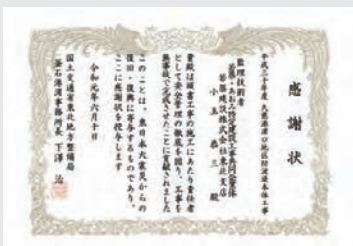 感謝状
平成三十年度 久慈港湾口地区防波堤本体工事
監理技術者
若築・あおみ特定建設工事共同企業体
若築建設株式会社東北支店
小玉 恭三 殿
貴殿は頭書工事の施工にあたり責任者
として安全管理の徹底を図り、工事を
無事故で完成させたことに貢献されました
このことは、東日本大震災からの
復旧・復興に寄与するものであり、
ここに感謝状を授与します
令和元年六月十日
国土交通省東北地方整備局
釜石港湾事務所長 下澤 治